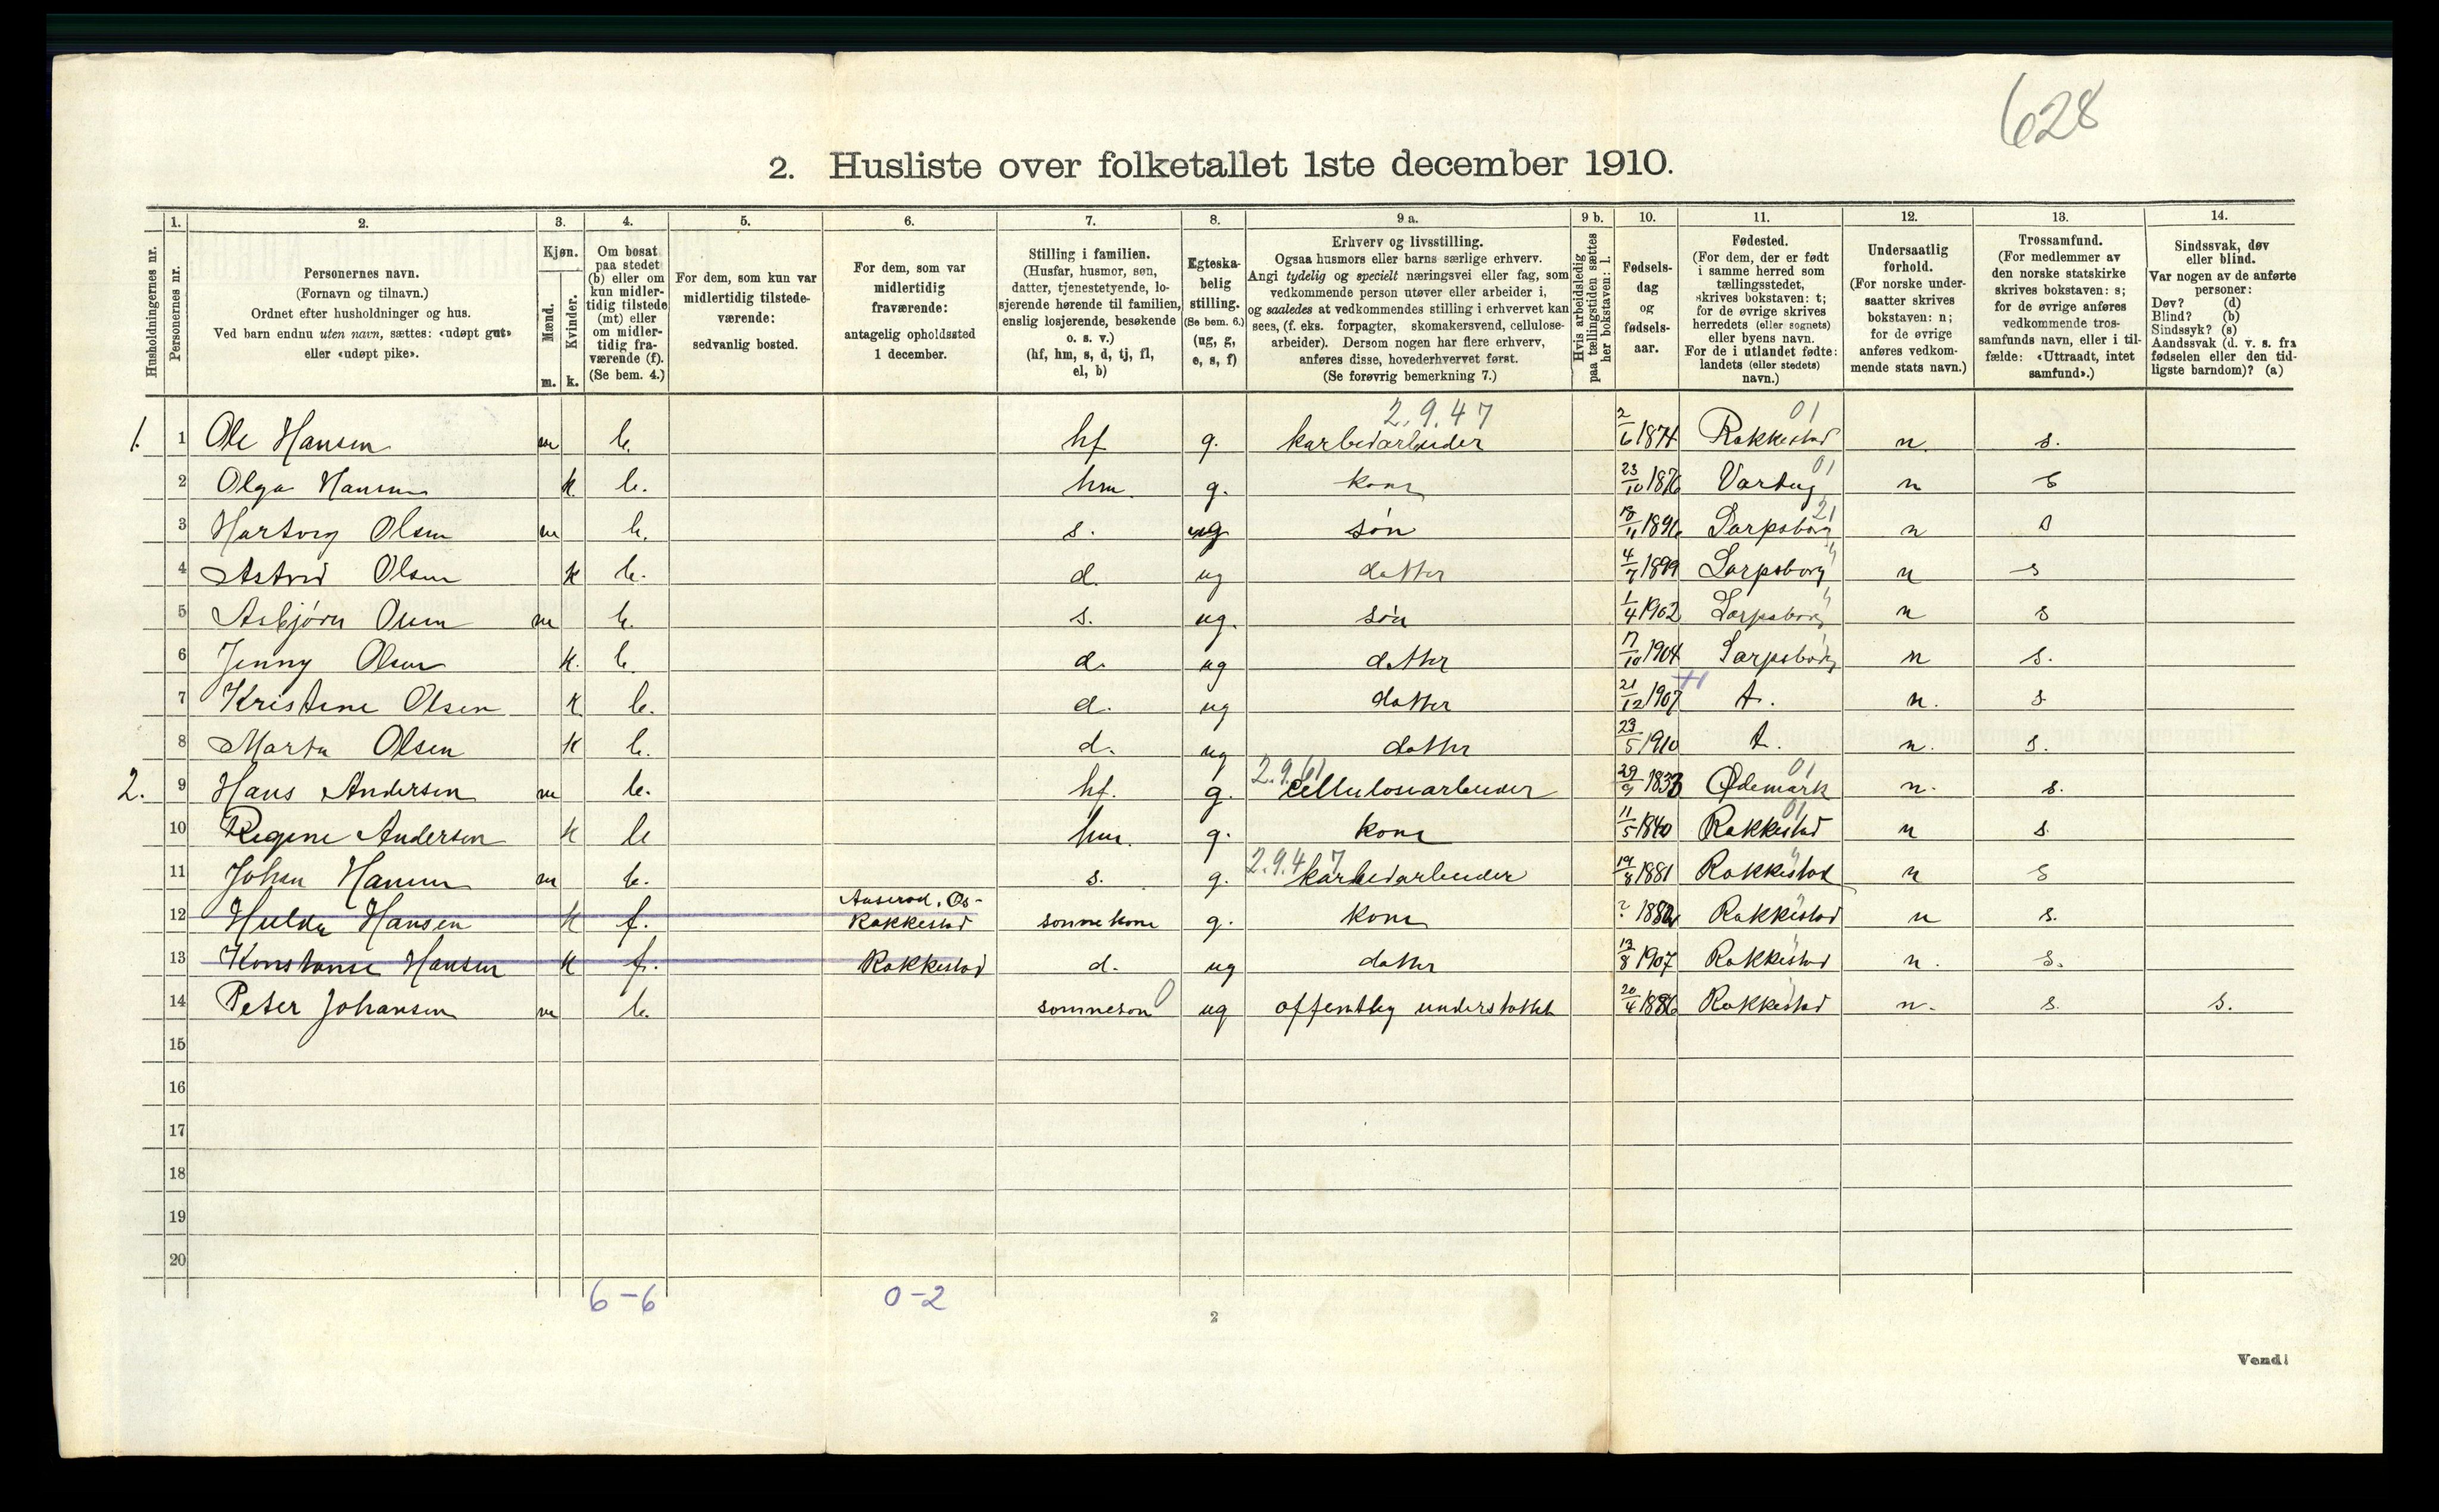 628
2. Husliste over folketallet 1ste december 1910.
Husholdningernes nr.
1. Personernes nr.
2. Personernes navn. (Fornavn og tilnavn.) Ordnet efter husholdninger og hus. Ved barn endnu uten navn, sættes: «udøpt gut» eller «udøpt pike».
3. Kjøn. Mænd. m. Kvinder. k.
4. Om bosat paa stedet (b) eller om kun midlertidig tilstede (mt) eller om midlertidig fraværende (f). (Se bem. 4.)
5. For dem, som kun var midlertidig tilstedeværende: sedvanlig bosted.
6. For dem, som var midlertidig fraværende: antagelig opholdssted 1 december.
7. Stilling i familien. (Husfar, husmor, søn, datter, tjenestetyende, losjerende hørende til familien, enslig losjerende, besøkende o. s. v.) (hf, hm, s, d, tj, fl, el, b)
8. Egteskabelig stilling. (Se bem. 6.) (ug, g, e, s, f)
9 a. Erhverv og livsstilling. Ogsaa husmors eller barns særlige erhverv. Angi tydelig og specielt næringsvei eller fag, som vedkommende person utøver eller arbeider i, og saaledes at vedkommendes stilling i erhvervet kan sees, (f. eks. forpagter, skomakersvend, cellulosearbeider). Dersom nogen har flere erhverv, anføres disse, hovederhvervet først. (Se forøvrig bemerkning 7.)
9 b. Hvis arbeidsledig paa tællingstiden sættes her bokstaven: l.
10. Fødselsdag og fødselsaar.
11. Fødested. (For dem, der er født i samme herred som tællingsstedet, skrives bokstaven: t; for de øvrige skrives herredets (eller sognets) eller byens navn. For de i utlandet fødte: landets (eller stedets) navn.)
12. Undersaatlig forhold. (For norske undersaatter skrives bokstaven: n; for de øvrige anføres vedkommende stats navn.)
13. Trossamfund. (For medlemmer av den norske statskirke skrives bokstaven: s; for de øvrige anføres vedkommende trossamfunds navn, eller i tilfælde: «Uttraadt, intet samfund».)
14. Sindssvak, døv eller blind. Var nogen av de anførte personer: Døv? (d) Blind? (b) Sindssyk? (s) Aandssvak (d. v. s. fra fødselen eller den tidligste barndom)? (a)
2.9.47 01
1. 1 Ole Hansen m b. hf g. karbidarbeider 2/6 1874 Rakkestad n. s.
2 Olga Hansen k b. hm. g. kone 23/10 1876 Varteig 01 n s
3 Hartvig Olsen m b. s. ug søn 18/11 1896 Sarpsborg 21 n s
4 Astrid Olsen k b. d. ug datter 4/7 1899 Sarpsborg " n s
5 Asbjørn Olsen m b. s. ug. søn 1/4 1902 Sarpsborg " n s
6 Jenny Olsen k. b. d. ug datter 17/10 1904 Sarpsborg n s.
7 Kristine Olsen k b. d. ug datter 21/12 1907 t. n. s
8 Marta Olsen k b. d. ug datter 23/5 1910 t. n. s.
2. 9 Hans Andersen m b. hf. g. 2.9.61 Cellulosearbeider 29/9 1833 Ødemark 01 n. s.
10 Regine Andersen k b hm. g. kone 11/5 1840 Rakkestad 01 n s.
11 Johan Hansen m b. s. g. 2.9.47 karbidarbeider 19/8 1881 Rakkestad " n s
12 Hulda Hansen k f. Rakkestad sønnekone g. kone ? 188 Rakkestad n s.
13 Konstanse Hansen k f. Rakkestad d. ug datter 13/8 1907 Rakkestad n. s.
14 Peter Johansen m b. sønneson 0 ug offentlig understøttet 20/4 1886 Rakkestad n. s. s.
15
16
17
18
19
20
6-6 0-2
2
Vend!